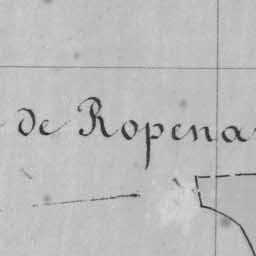 de Ropena